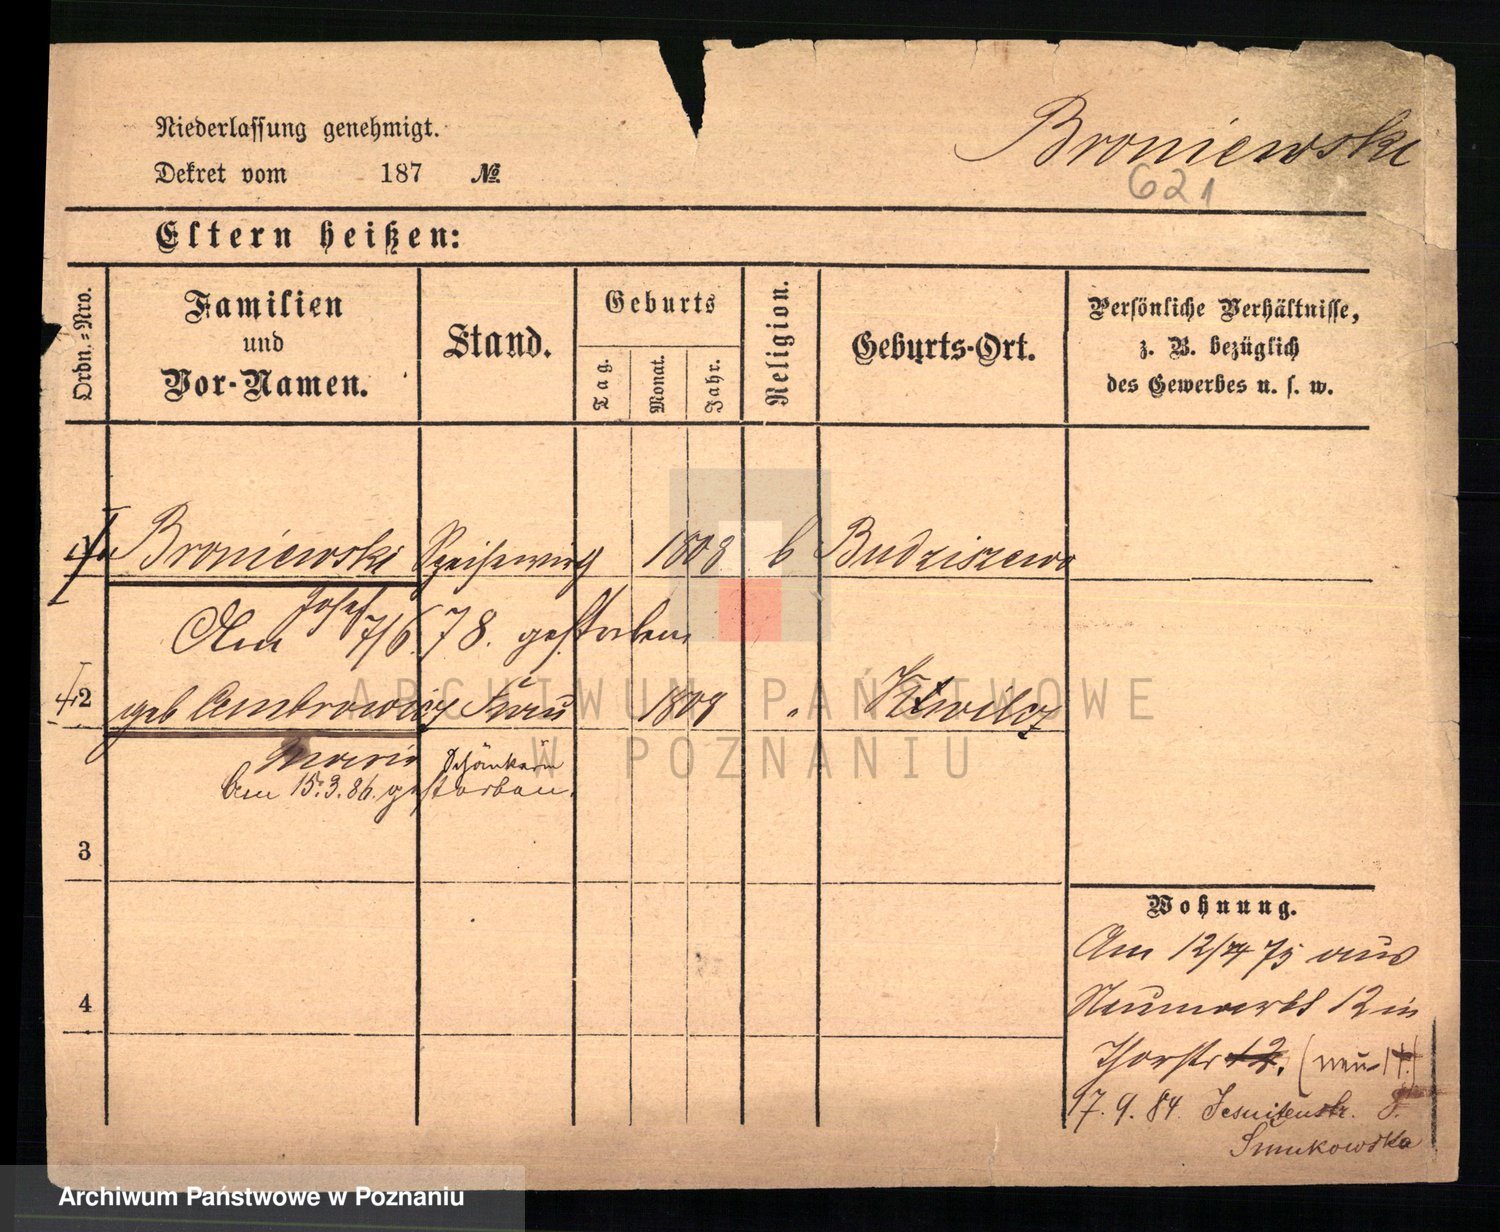 Niederlassung genehmigt.
Dekret vom 187 №
Broniewski
621
Eltern heißen:
Ordn.=Nro.
Familien
und
Vor-Namen.
Stand.
Geburts
Tag.
Monat.
Jahr.
Religion.
Geburts-Ort.
Persönliche Verhältnisse,
z. B. bezüglich
des Gewerbes u. s. w.
Broniewski Speisewirth 1808 k Budziszewo
Josef
Am 7/6. 78. gestorben
2 geb Ambrowicz Frau 1808 " Kwilcz
Maria Schänkerin
Am 15.3.86. gestorben.
3
4
Wohnung.
Am 12/4 75 aus
Neumarkt 12 in
Thorstr 12. (neu 14.)
17. 9. 84. Jesuitenstr. 8.
Smukowska
ARCHIWUM PAŃSTWOWE
W POZNANIU
Archiwum Państwowe w Poznaniu